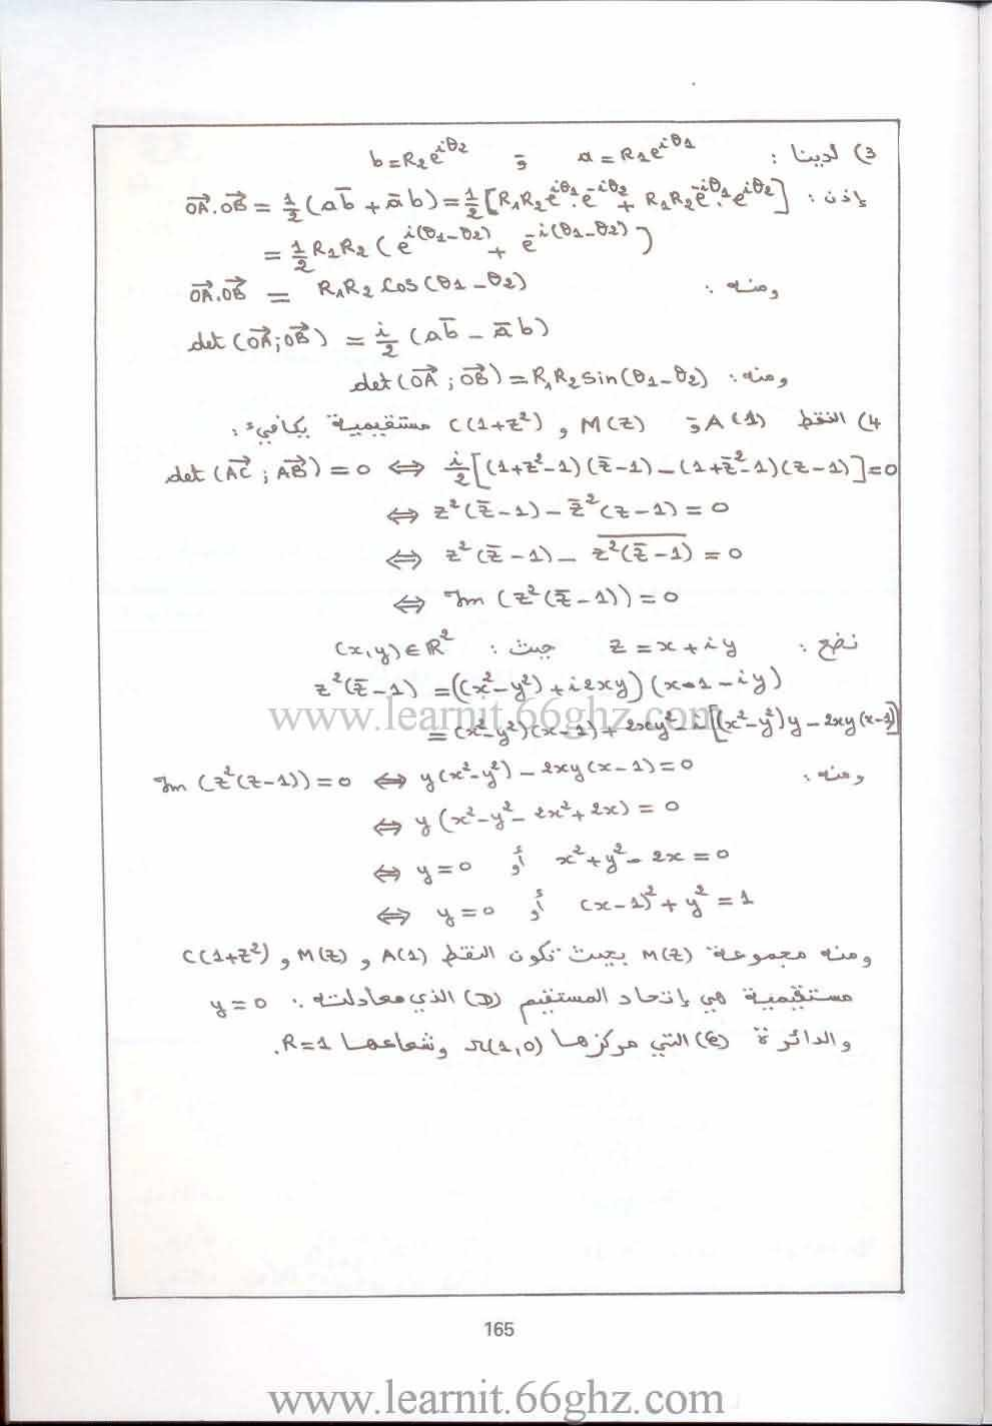 3) لدينا : a = R₁e^{iθ₁} و b = R₂e^{iθ₂}
إذن : \vec{OA}.\vec{OB} = \frac{1}{2}(a\bar{b} + \bar{a}b) = \frac{1}{2}[R₁R₂e^{iθ₁}.e^{-iθ₂} + R₁R₂e^{-iθ₁}.e^{iθ₂}]
= \frac{1}{2}R₁R₂(e^{i(θ₁-θ₂)} + e^{-i(θ₁-θ₂)})
ومنه : \vec{OA}.\vec{OB} = R₁R₂ cos(θ₁-θ₂)
det(\vec{OA};\vec{OB}) = \frac{i}{2}(a\bar{b} - \bar{a}b)
ومنه : det(\vec{OA};\vec{OB}) = R₁R₂ sin(θ₁-θ₂)
4) النقط A(1) و M(z) و C(1+z²) مستقيمية يكافيء :
det(\vec{AC};\vec{AB}) = 0 ⇔ \frac{i}{2}[(1+z²-1)(\bar{z}-1) - (1+\bar{z}²-1)(z-1)] = 0
⇔ z²(\bar{z}-1) - \bar{z}²(z-1) = 0
⇔ z²(\bar{z}-1) - \overline{z²(\bar{z}-1)} = 0
⇔ Im(z²(\bar{z}-1)) = 0
نضع : z = x+iy حيث : (x,y)∈ℝ²
z²(\bar{z}-1) = ((x²-y²)+i2xy)(x-1-iy)
= (x²-y²)(x-1) + 2xy² - i[(x²-y²)y - 2xy(x-1)]
ومنه : Im(z²(z-1)) = 0 ⇔ y(x²-y²) - 2xy(x-1) = 0
⇔ y(x²-y²-2x²+2x) = 0
⇔ y=0 أو x²+y²-2x = 0
⇔ y=0 أو (x-1)²+y² = 1
ومنه مجموعة M(z) بحيث تكون النقط A(1) و M(z) و C(1+z²)
مستقيمية هي إتحاد المستقيم (D) الذي معادلته : y = 0
والدائرة (C) التي مركزها Ω(1,0) وشعاعها R=1.
www.learnit.66ghz.com
165
www.learnit.66ghz.com